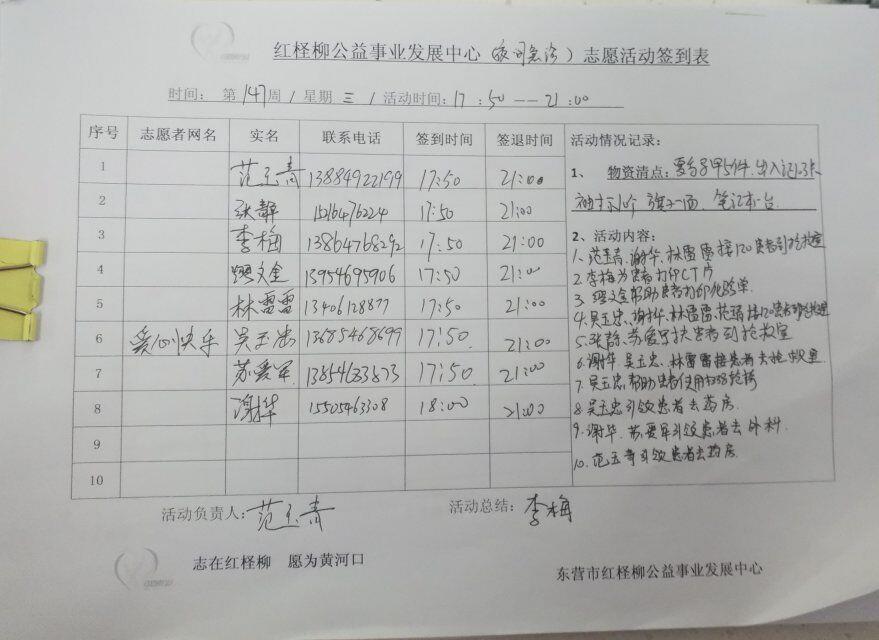 红柽柳公益事业发展中心（夜间急诊）志愿活动签到表
时间：第147周/星期三/活动时间：17:50——21:00
序号 志愿者网名 实名 联系电话 签到时间 签退时间
1 范玉青 13884922199 17:50 21:00
2 张静 15216476224 17:50 21:00
3 李梅 13864768292 17:50 21:00
4 文金 13954695906 17:50 21:00
5 林雷雷 13406128877 17:50 21:00
6 爱心快乐 吴玉忠 13685468699 17:50 21:00
7 苏爱军 13854633873 17:50 21:00
8 谢华 15505463308 18:00 21:00
9
10
活动情况记录：
1、 物资清点：马甲5件.出入证3张
袖标 个 旗子一面. 笔记本一台.
2、活动内容：
1、范玉青、谢华、林雷雷接120患者到抢救室
2、李梅为患者打印CT片
3、文金帮助患者打印化验单.
4、吴玉忠、谢华、林雷雷、接120患者 抢救室
5、张静、苏爱军扶患者到抢救室
6、谢华 吴玉忠、林雷雷接患者去抢救室
7、吴玉忠帮助患者使用
8、吴玉忠引领患者去药房.
9、谢华.苏爱军引领患者去外科.
10、范玉青引领患者去药房.
活动负责人：范玉青 活动总结：李梅
志在红柽柳 愿为黄河口
东营市红柽柳公益事业发展中心